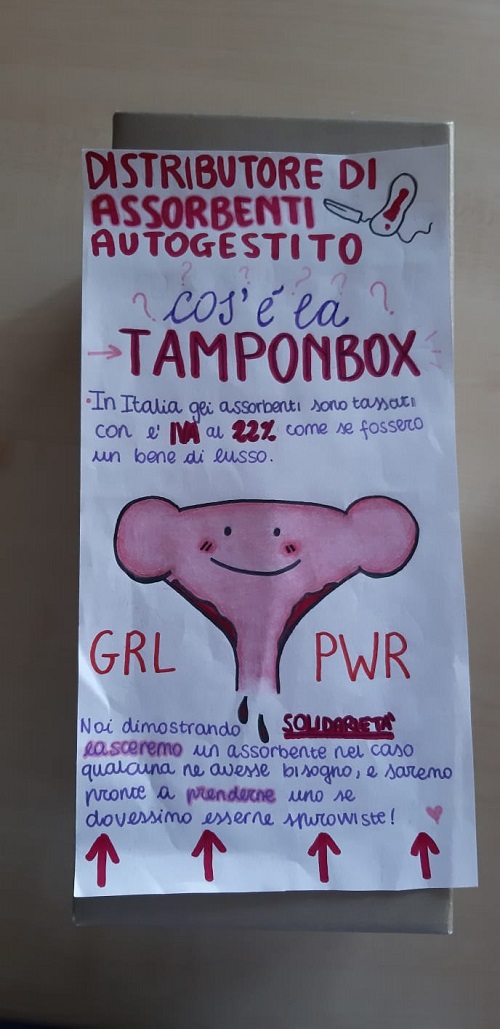 DISTRIBUTORE DI
ASSORBENTI
AUTOGESTITO
? ? ? ? ? ?
cos'é la
TAMPONBOX
• In Italia gli assorbenti sono tassati
con l' IVA al 22% come se fossero
un bene di lusso.
GRL PWR
Noi dimostrando SOLIDARIETA'
lasceremo un assorbente nel caso
qualcuna ne avesse bisogno, e saremo
pronte a prenderne uno se
dovessimo esserne sprovviste!